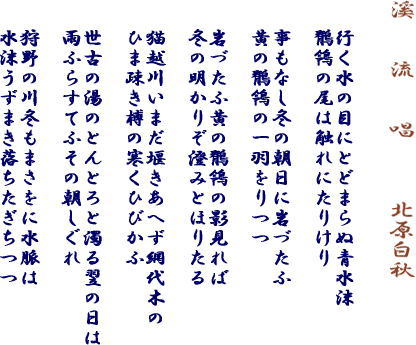 溪流唱 北原白秋
行く水の目にとどまらぬ青水沫
鶺鴒の尾は触れにたりけり
事もなし冬の朝日に岩づたふ
黄の鶺鴒の一羽をりつつ
岩づたふ黄の鶺鴒の影見れば
冬の明かりぞ澄みとほりたる
猫越川いまだ堰きあへず網代木の
ひま疎き榑の寒くひびかふ
世古の湯のとんとろと濁る翌の日は
雨ふらすてふその朝しぐれ
狩野の川冬もまさをに水脈は
水沫うずまき落ちたぎちつつ